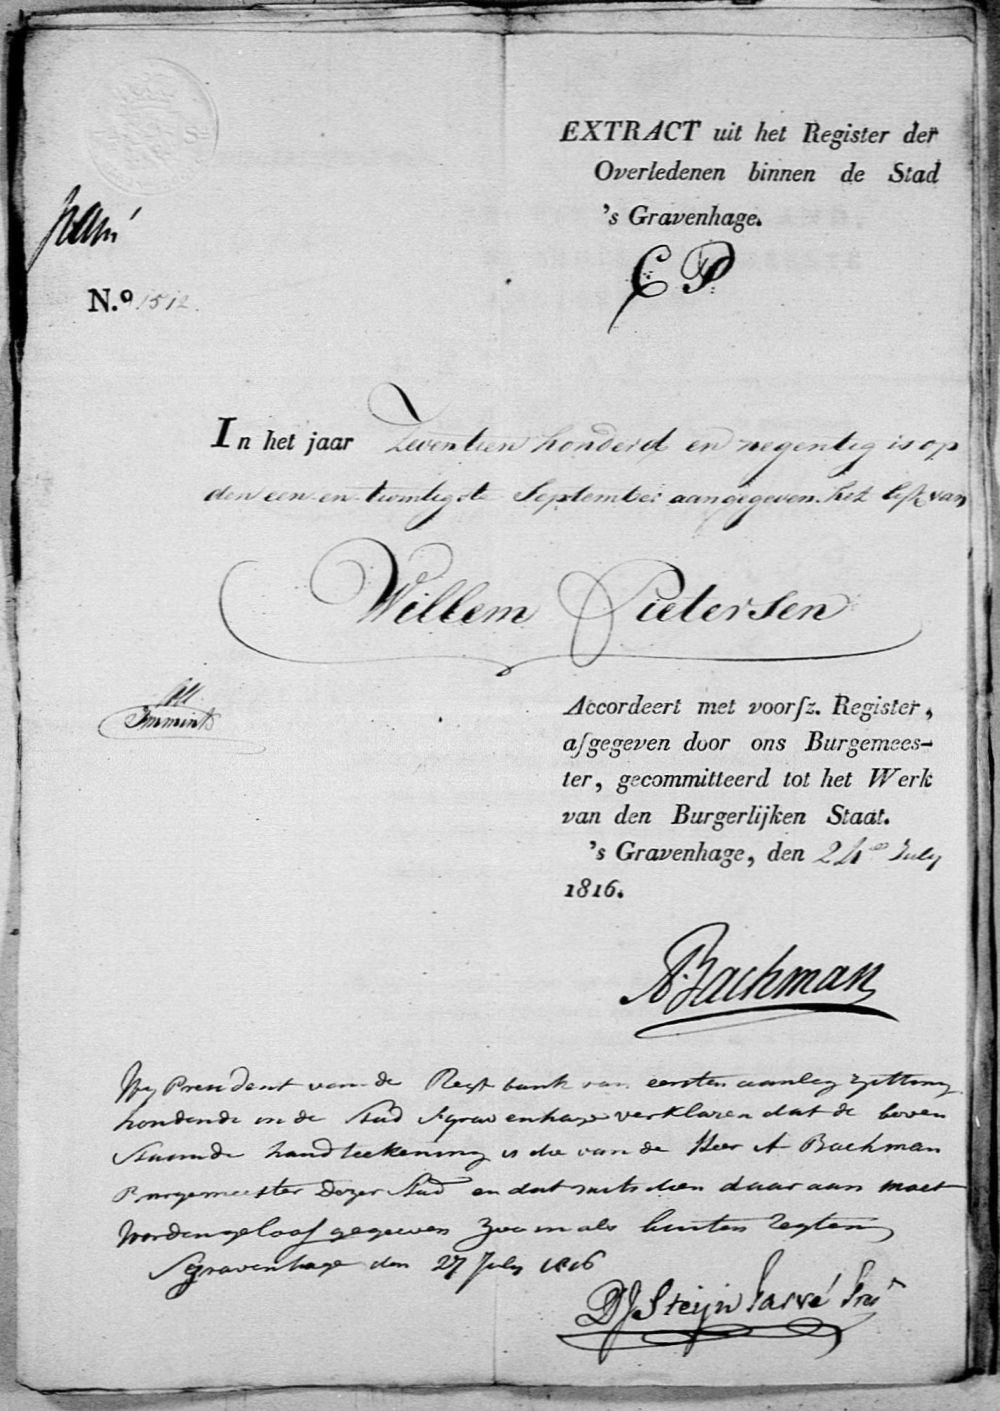 EXTRACT uit het Register der
Overledenen binnen de Stad
's Gravenhage.
C P
N.º 1512.
In het jaar Zeventien honderd en negentig is op
den een en twintigste September aangegeven het lijk van
Willem Pietersen
Accordeert met voorsz. Register,
afgegeven door ons Burgemees-
ter, gecommitteerd tot het Werk
van den Burgerlijken Staat.
's Gravenhage, den 24e July
1816.
A. Bachman
Wij President van de Regt bank van eersten aanleg zitting
houdende in de Stad S'gravenhage verklaren dat de boven
Staande handteekening is die van de Heer A Bachman
Burgemeester dezer Stad en dat mitsdien daar aan moet
worden geloof gegeven zoo in als buiten regten
S'gravenhage den 27 July 1816
DJ Steijn Parvé